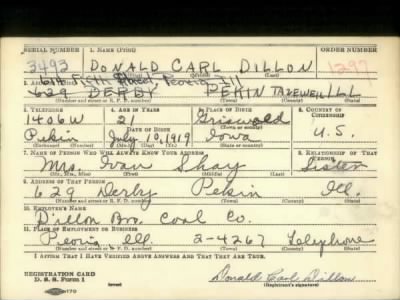 SERIAL NUMBER 1. NAME (Print) ORDER NUMBER
3493 DONALD CARL DILLON 1297
614 Fifth Street Peoria Ill
629 DERBY PEKIN TAZEWELL ILL
(Number and street or R. F. D. number) (Town) (County) (State)
3. TELEPHONE 4. AGE IN YEARS 5. PLACE OF BIRTH 6. COUNTRY OF CITIZENSHIP
1406W 21 Griswold
DATE OF BIRTH (Town or county)
Pekin July 10, 1919 Iowa U.S.
(Exchange) (Number) (Mo.) (Day) (Yr.) (State or country)
7. NAME OF PERSON WHO WILL ALWAYS KNOW YOUR ADDRESS 8. RELATIONSHIP OF THAT PERSON
Mrs. Ivan Shay Sister
(Mr., Mrs., Miss) (First) (Middle) (Last)
9. ADDRESS OF THAT PERSON
629 Derby Pekin Ill.
(Number and street or R. F. D. number) (Town) (County) (State)
10. EMPLOYER'S NAME
Dillon Bro. Coal Co.
11. PLACE OF EMPLOYMENT OR BUSINESS
Peoria Ill 2-4267 Telephone
(Number and street or R. F. D. number) (Town) (County) (State)
I AFFIRM THAT I HAVE VERIFIED ABOVE ANSWERS AND THAT THEY ARE TRUE.
REGISTRATION CARD
D. S. S. Form 1 (over) Donald Carl Dillon
(Registrant's signature)